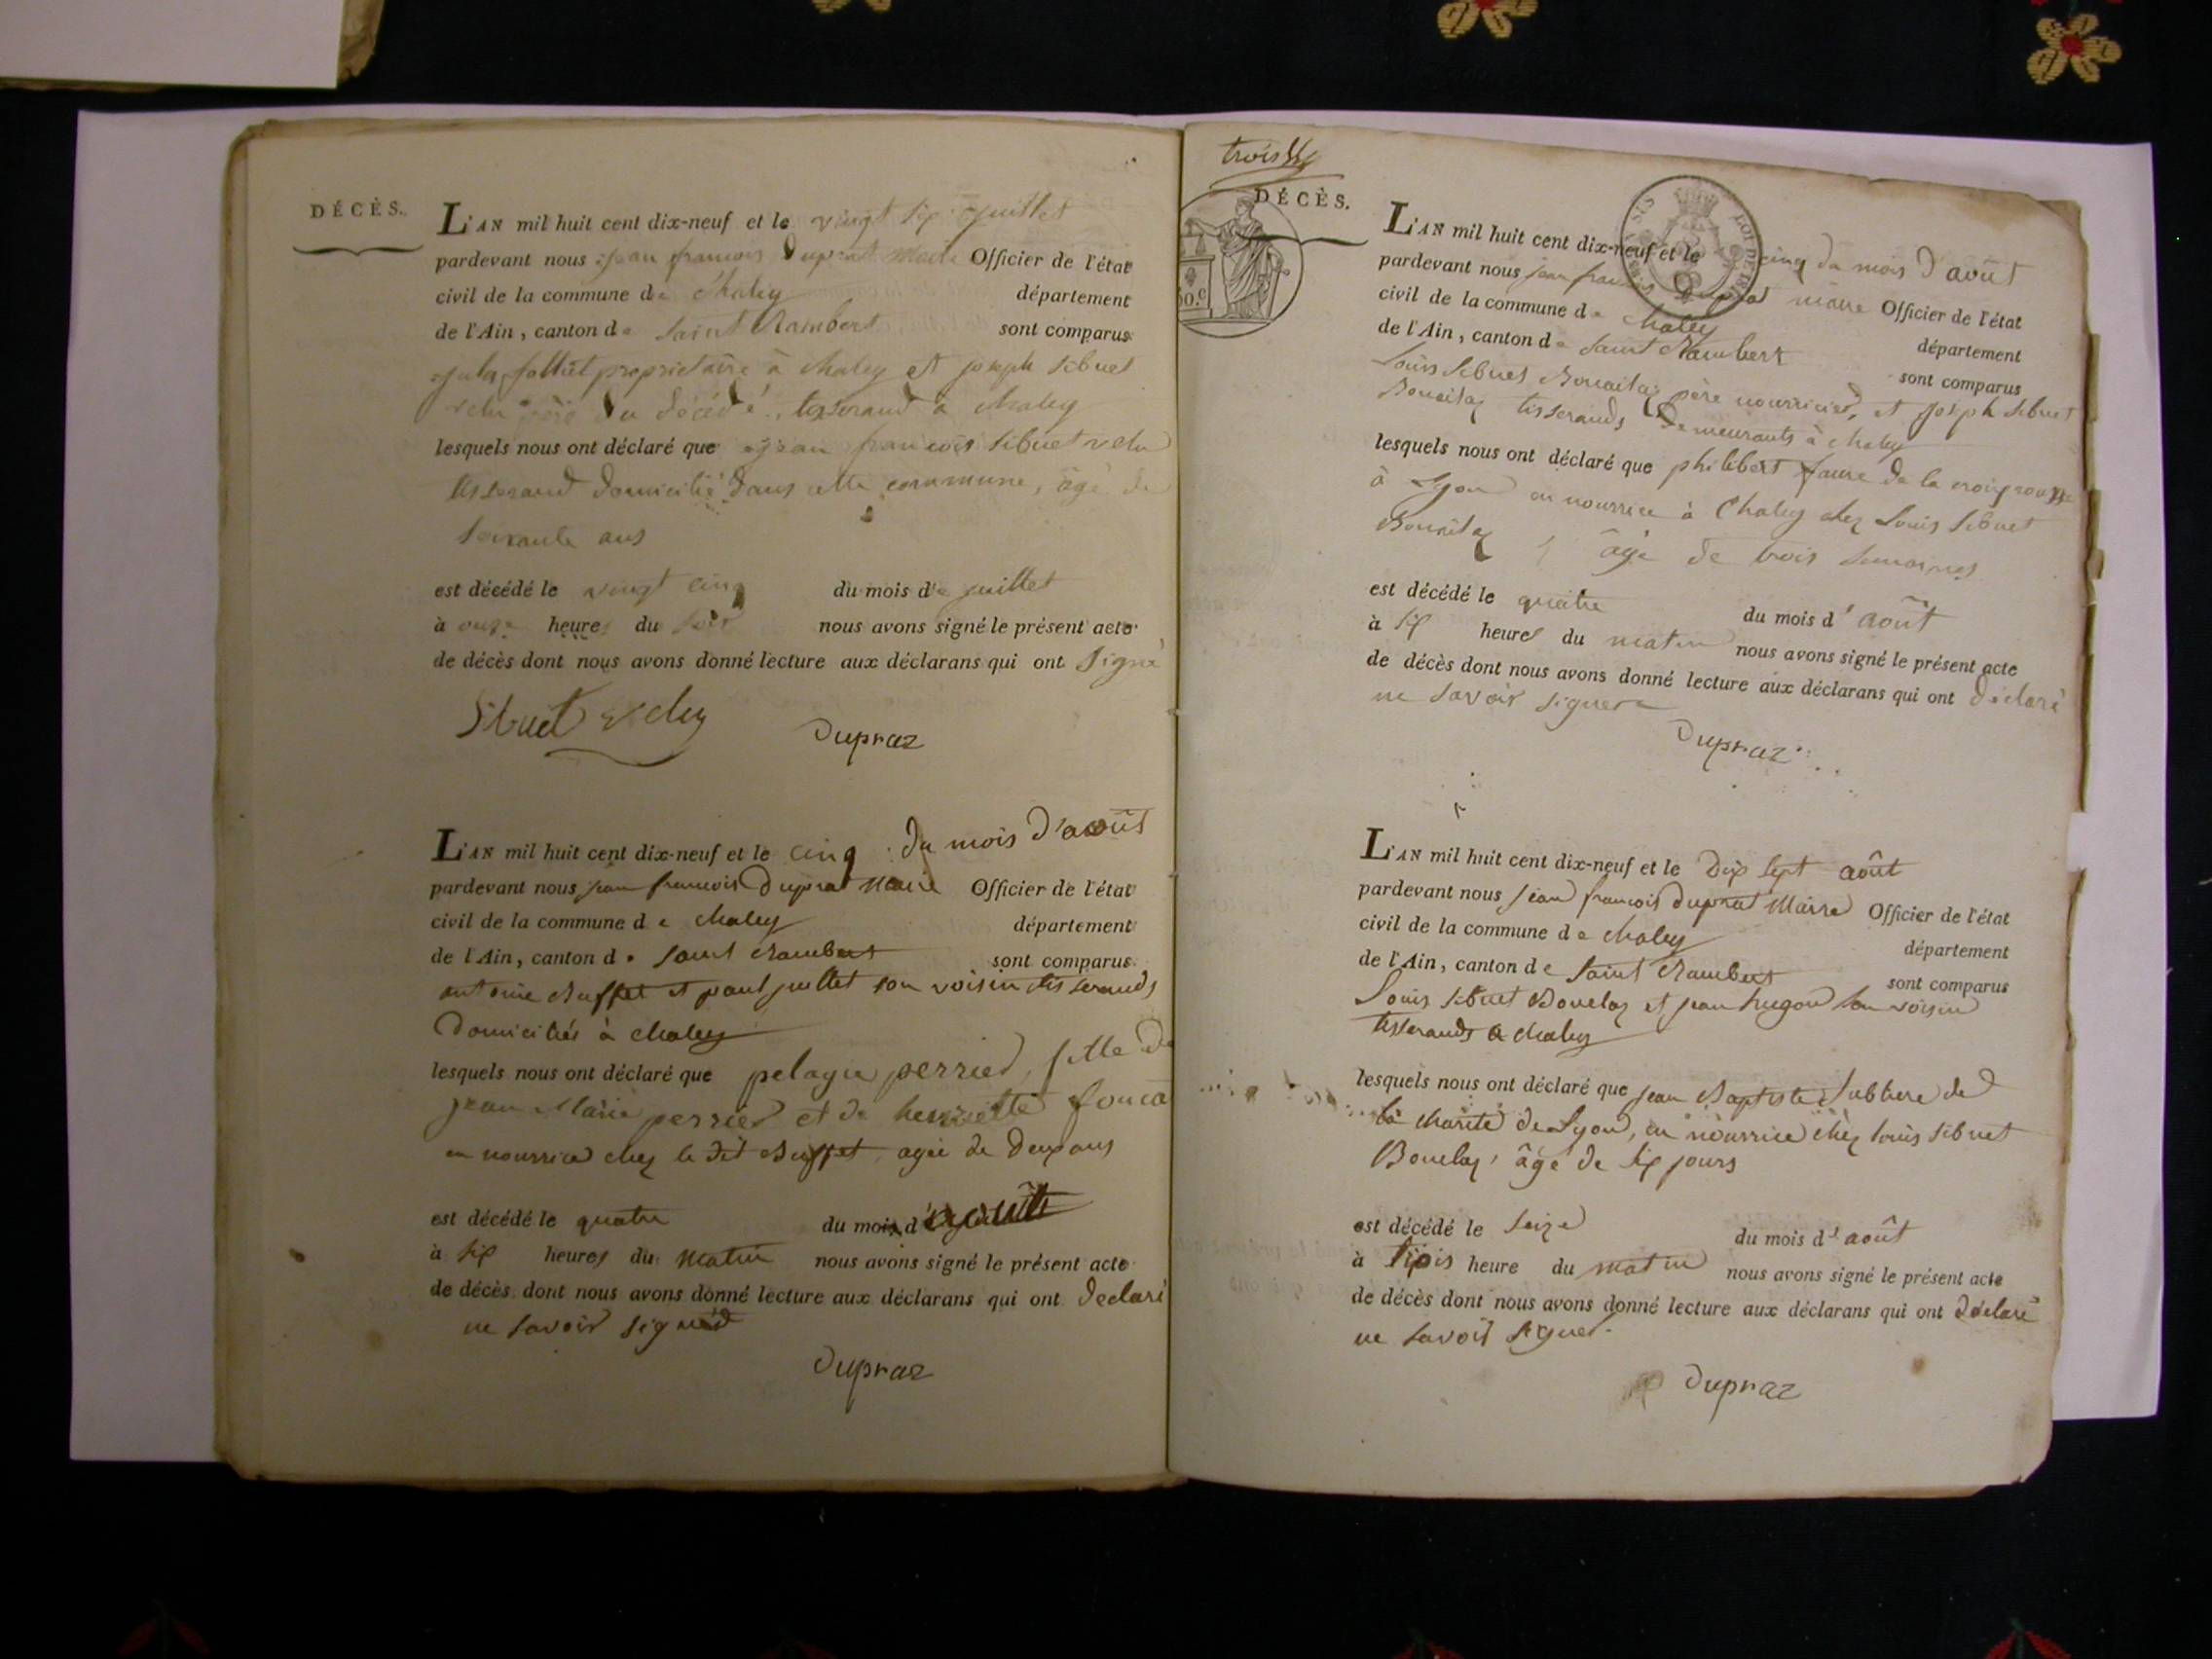 DÉCÈS.
L'AN mil huit cent dix-neuf et le vingt six juillet
pardevant nous jean francois Duprat Maire Officier de l'état
civil de la commune de Chaley département
de l'Ain, canton de Saint Rambert sont comparus
propriétaire à chaley et joseph Sibuet
velu du décédé, tisserand à chaley
lesquels nous ont déclaré que jean francois Sibuet velu
tisserand domicilié dans cette commune, âgé de
soixante ans
est décédé le vingt cinq du mois de juillet
à onze heures du soir nous avons signé le présent acte
de décès dont nous avons donné lecture aux déclarans qui ont signé
Sibuet velu Dupraz
L'AN mil huit cent dix-neuf et le cinq du mois d'août
pardevant nous jean francois Duprat Maire Officier de l'état
civil de la commune de chaley département
de l'Ain, canton de saint Rambert sont comparus
antoine Buffet et paul juillet son voisin tisserands
Domiciliés à chaley
lesquels nous ont déclaré que pelagie perried, fille de
jean Marie perried et de henriette
en nourrice chez le dit Buffet, agée de Deux ans
est décédé le quatre du mois d'août
à six heures du matin nous avons signé le présent acte
de décès dont nous avons donné lecture aux déclarans qui ont déclaré
ne savoir signer
Dupraz
trois
DÉCÈS.
L'AN mil huit cent dix-neuf et le cinq du mois d'août
pardevant nous jean francois Duprat maire Officier de l'état
civil de la commune de chaley département
de l'Ain, canton de saint Rambert sont comparus
Louis Sibuet Bouailaz père nourricier, et joseph Sibuet
Bouailaz tisserands Demeurants à chaley
lesquels nous ont déclaré que philibert faure de la croix rousse
à Lyon en nourrice à Chaley chez Louis Sibuet
Bouailaz âgé de trois semaines
est décédé le quatre du mois d'août
à six heures du matin nous avons signé le présent acte
de décès dont nous avons donné lecture aux déclarans qui ont déclaré
ne savoir signer
Dupraz
L'AN mil huit cent dix-neuf et le Dix sept août
pardevant nous jean francois Duprat Maire Officier de l'état
civil de la commune de chaley département
de l'Ain, canton de saint Rambert sont comparus
Louis Sibuet Bouelaz et jean hugon son voisin
tisserands à chaley
lesquels nous ont déclaré que jean Baptiste de
la charité de Lyon, en nourrice chez louis Sibuet
Bouelaz, âgé de six jours
est décédé le seize du mois d'août
à trois heure du matin nous avons signé le présent acte
de décès dont nous avons donné lecture aux déclarans qui ont déclaré
ne savoir signer.
Dupraz